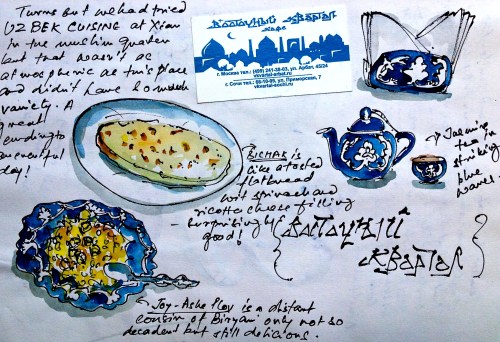 Turns out we had tried
UZBEK CUISING at Xian
in the muslim quater
but that wasn't as
atmospheric as this place
and didn't have so much
variety. A
great
ending to
an eventful
day!
Восточный квартал
кафе
г. Москва тел.: (499) 241-38-03, ул. Арбат, 45/24
vkvartal-arbat.ru
г. Сочи тел.: 60-10-89, ул. Приморская, 7
vkvartal-sochi.ru
Jasmine
tea in
striking
blue
wares.
BICHAK is
like a toasted
flatbread
with spinach and
ricotta cheese filling
- surprisingly
good!
Восточный
квартал
Joy-Ashe Plov is a distant
cousin of Biryani only not so
decadent but still delicious.